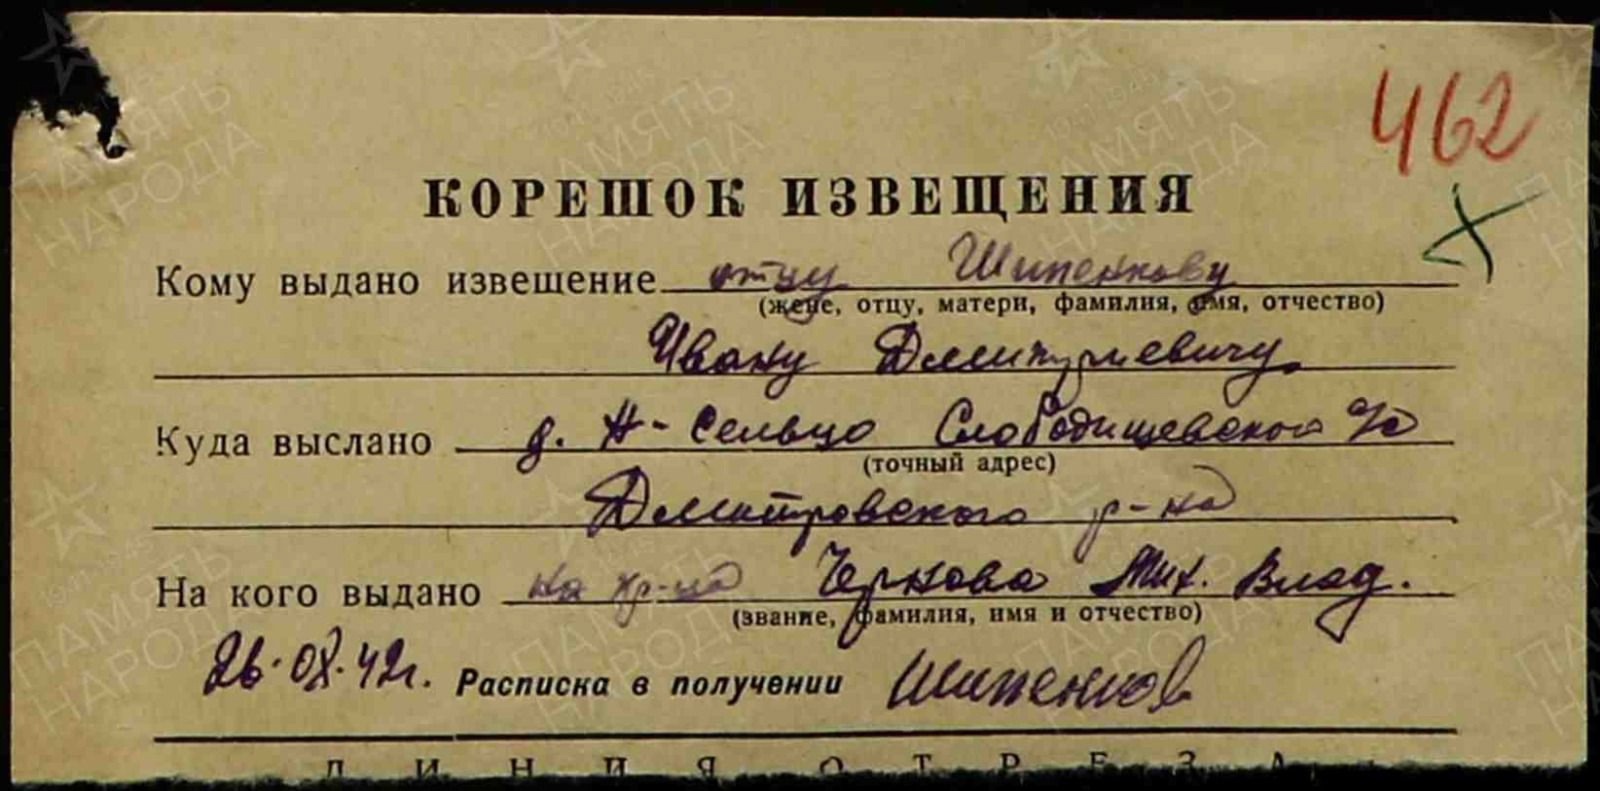 462
КОРЕШОК ИЗВЕЩЕНИЯ
Кому выдано извещение отцу Шипенкову
(жене, отцу, матери, фамилия, имя, отчество)
Ивану Дмитриевичу
Куда выслано д. Н-Сельцо Слободищевского с/с
(точный адрес)
Дмитровского р-на
На кого выдано на кр-ца Чернова Мих. Влад.
(звание, фамилия, имя и отчество)
26.08.42г. Расписка в получении Шипенков
ЛИНИЯ ОТРЕЗА
ПАМЯТЬ НАРОДА